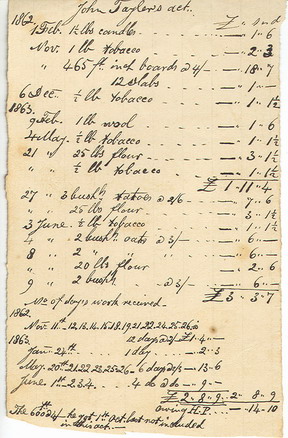 John Taylor's act.
1862. £ s d
1 Feb. 1½ lbs candles 1 - 6
Nov. 1 lb tobacco 2 - 3
" 465 ft. inch boards @ 4/- 18 - 7
12 slabs 1 -
6 Dec. ½ lb tobacco 1 - 1½
1863.
9 Feb. 1 lb wool 1 - 6
4 May. ½ lb tobacco 1 - 1½
21 " 25 lbs flour 3 - 1½
" " ½ lb tobacco 1 - 1½
£ 1 - 11 - 4
27 " 3 bushls @ 2/6 7 - 6
" " 25 lbs flour 3 - 1½
3 June. ½ lb tobacco 1 - 1½
4 " 2 bushls oats @ 3/- 6 -
8 " 2 " " 6 -
" " 20 lbs flour 2 - 6
9 " 2 bushls @ 3/- 6 -
£ 3 - 3 - 7
No. of days work received.
1862.
Nov. 11th 12, 13, 14, 15, 18, 19, 21, 22, 24, 25, 26
1863. a day 2/ £ 1 - 4 -
Jany 24th 1 day 2 - 3
May. 20th 21, 22, 23, 25, 26 6 days 13 - 6
June 1st 2, 3, 4 4 do do 9 -
£ 2 - 8 - 9 2 8 - 9
owing H.P. 14 - 10
The he got 1st Act. last not included
in this act.